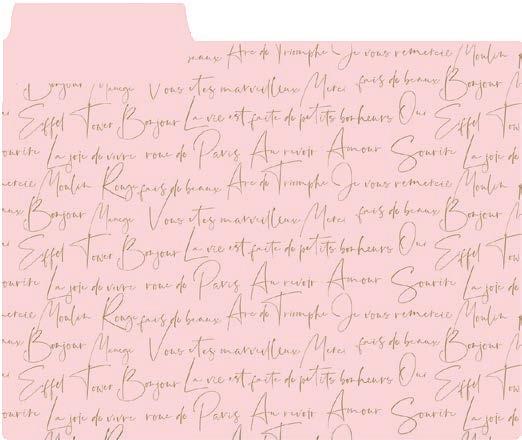 beaux Arc de Triomphe Je vous remercie Moulin
Bonjour Manege Vous etes marveilleux Merci fais de beaux Bonjour
Eiffel Tower Bonjour La vie est faite de petits bonheurs Oui Eiffel Tow
ourire La joie de vivre roue de Paris Au revoir Amour Sourire La joie de
mercie Moulin Rouge fais de beaux Arc de Triomphe Je vous remercie Moulin
aux Bonjour Manege Vous etes marveilleux Merci fais de beaux Bonjour
ui Eiffel Tower Bonjour La vie est faite de petits bonheurs Oui Eiffel Tow
ourire La joie de vivre roue de Paris Au revoir Amour Sourire La joie de
mercie Moulin Rouge fais de beaux Arc de Triomphe Je vous remercie Moulin
aux Bonjour Manege Vous etes marveilleux Merci fais de beaux Bonjour
ui Eiffel Tower Bonjour La vie est faite de petits bonheurs Oui Eiffel Tow
ourire La joie de vivre roue de Paris Au revoir Amour Sourire La joie de